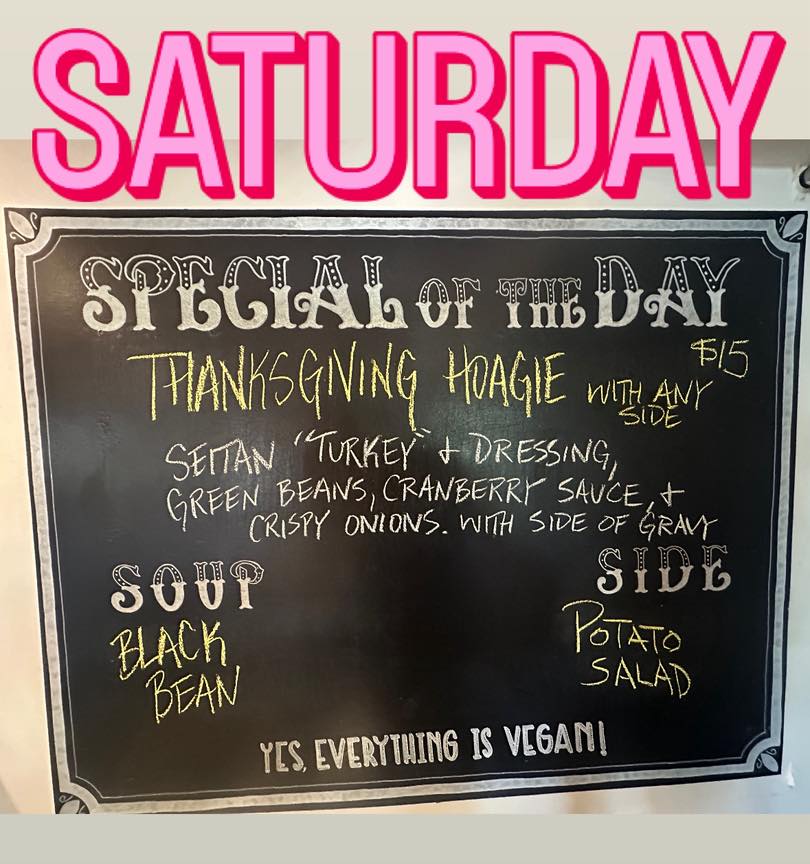 SATURDAY
SPECIAL OF THE DAY
$15
THANKSGIVING HOAGIE WITH ANY
SIDE
SEITAN "TURKEY" & DRESSING,
GREEN BEANS, CRANBERRY SAUCE, &
CRISPY ONIONS. WITH SIDE OF GRAVY
SOUP
BLACK
BEAN
SIDE
POTATO
SALAD
YES, EVERYTHING IS VEGAN!